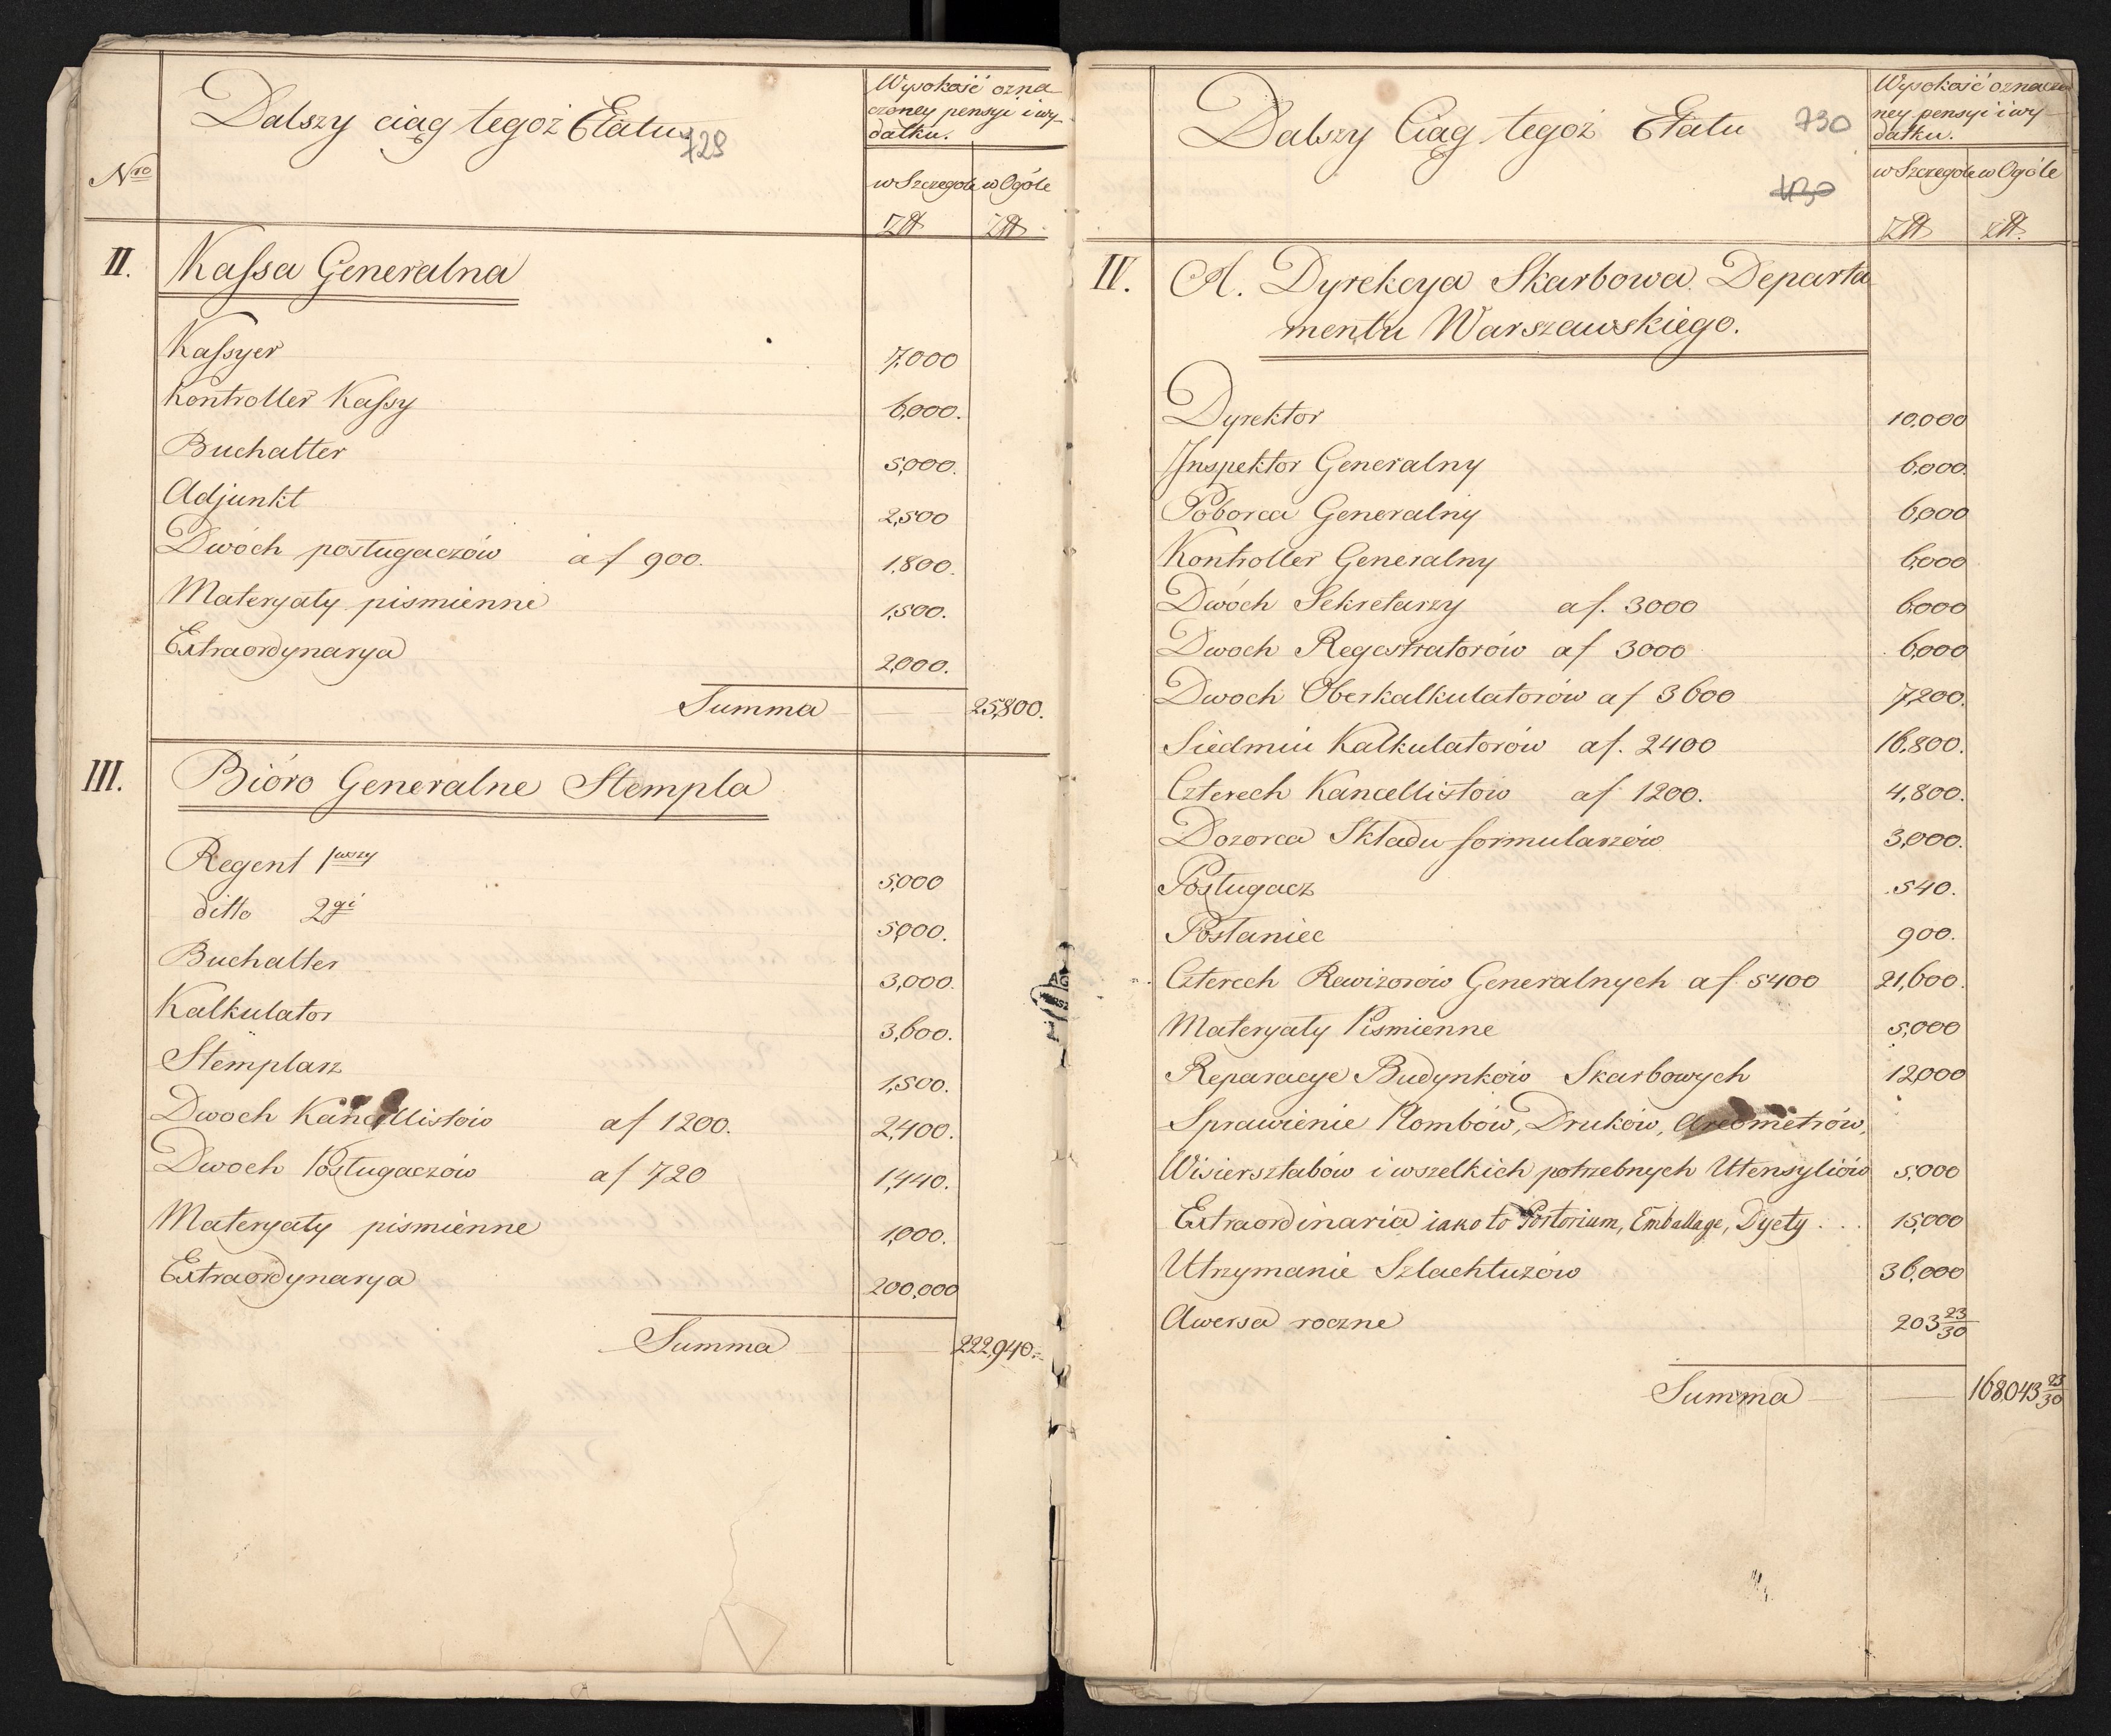 Nro
Dalszy ciąg tegoż Etatu
729
Wysokość ozna
czoney pensyi i wy-
datku.
w Szczególe w Ogóle
Złt Złt
II. Kassa Generalna
Kassyer 7,000
Kontroller Kassy 6,000.
Buchalter 5,000.
Adjunkt 2,500
Dwóch posługaczów à f 900. 1,800.
Materyały pismienne 1,500.
Extraordynarya 2,000.
Summa 25,800.
III. Bióro Generalne Stempla
Regent 1wszy 5,000
ditto 2gi 5,000.
Buchalter 3,000.
Kalkulator 3,600.
Stemplarz 1,500.
Dwoch Kancellistów af 1200. 2,400.
Dwoch Posługaczów af 720 1,440.
Materyały pismienne 1,000.
Extraordynarya 200,000
Summa 222,940.
Dalszy Ciąg tegoż Etatu 730
430
Wysokość oznaczo
ney pensyi i wy-
datku.
w Szczególe w Ogóle
Złt Złt.
IV. A. Dyrekcya Skarbowa Departa
mentu Warszawskiego.
Dyrektor 10,000
Inspektor Generalny 6,000.
Poborca Generalny 6,000
Kontroller Generalny 6,000
Dwóch Sekretarzy af. 3000 6,000
Dwoch Regestratorów af 3000 6,000
Dwoch Oberkalkulatorów af 3600 7,200.
Siedmiu Kalkulatorów af. 2400 16,800.
Czterech Kancellistow af 1200. 4,800.
Dozorca Składu formularzów 3,000.
Posługacz 540.
Posłaniec 900.
Czterech Rewizorów Generalnych af 5400 21,600.
Materyały Pismienne 5,000
Reparacye Budynków Skarbowych 12,000
Sprawienie Plombów, Druków, Areometrów,
Wisiersztabów i wszelkich potrzebnych Utensyliów 5,000
Extraordinaria iako to Portorium, Emballage, Dyety . . . 15,000
Utrzymanie Szlachtuzów 36,000
Awersa roczne 203 23/30
Summa 168,043 23/30